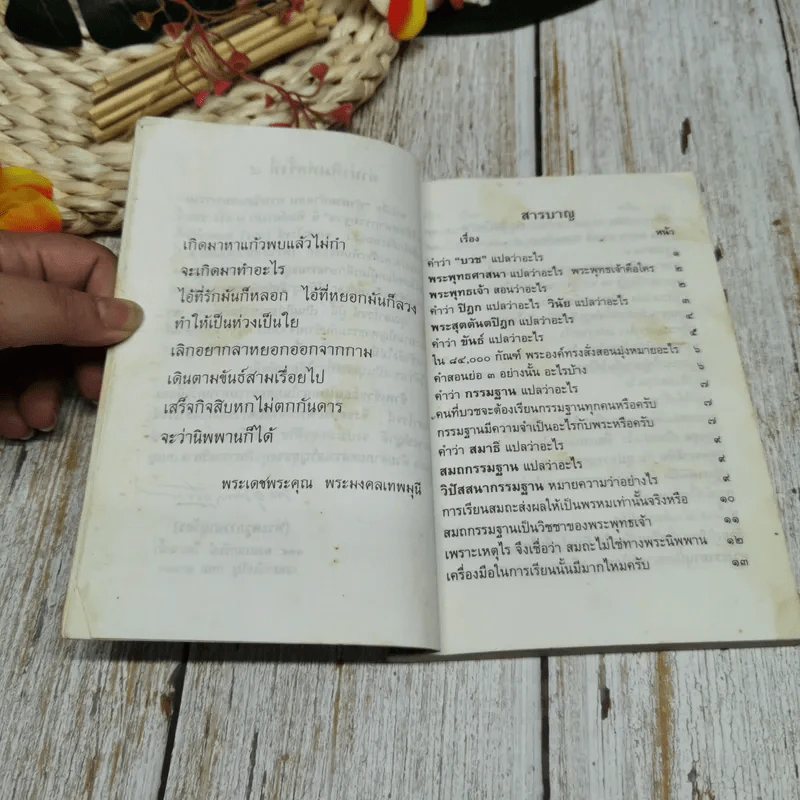 เกิดมาหาแก้วพบแล้วไม่กำ
จะเกิดมาทำอะไร
ไอ้ที่รักมันก็หลอก ไอ้ที่หยอกมันก็ลวง
ทำให้เป็นห่วงเป็นใย
เลิกอยากลาหยอกออกจากกาม
เดินตามขันธ์สามเรื่อยไป
เสร็จกิจสิบหกไม่ตกกันดาร
จะว่านิพพานก็ได้
พระเดชพระคุณ พระมงคลเทพมุนี
สารบาญ
เรื่อง หน้า
คำว่า "บวช" แปลว่าอะไร ๑
พระพุทธศาสนา แปลว่าอะไร พระพุทธเจ้าคือใคร ๒
พระพุทธเจ้า สอนว่าอะไร ๒
คำว่า ปิฎก แปลว่าอะไร วินัย แปลว่าอะไร ๓
พระสุตตันตปิฎก แปลว่าอะไร ๔
คำว่า ขันธ์ แปลว่าอะไร ๕
ใน ๘๔,๐๐๐ กัณฑ์ พระองค์ทรงสั่งสอนมุ่งหมายอะไร ๖
คำสอนย่อ ๓ อย่างนั้น อะไรบ้าง ๖
คำว่า กรรมฐาน แปลว่าอะไร ๗
คนที่บวชจะต้องเรียนกรรมฐานทุกคนหรือครับ ๗
กรรมฐานมีความจำเป็นอะไรกับพระหรือครับ ๗
คำว่า สมาธิ แปลว่าอะไร ๙
สมถกรรมฐาน แปลว่าอะไร ๙
วิปัสสนากรรมฐาน หมายความว่าอย่างไร ๙
การเรียนสมถะส่งผลให้เป็นพรหมเท่านั้นจริงหรือ ๑๐
สมถกรรมฐานเป็นวิชชาของพระพุทธเจ้า ๑๑
เพราะเหตุไร จึงเชื่อว่า สมถะไม่ใช่ทางพระนิพพาน ๑๒
เครื่องมือในการเรียนนั้นมีมากไหมครับ ๑๓